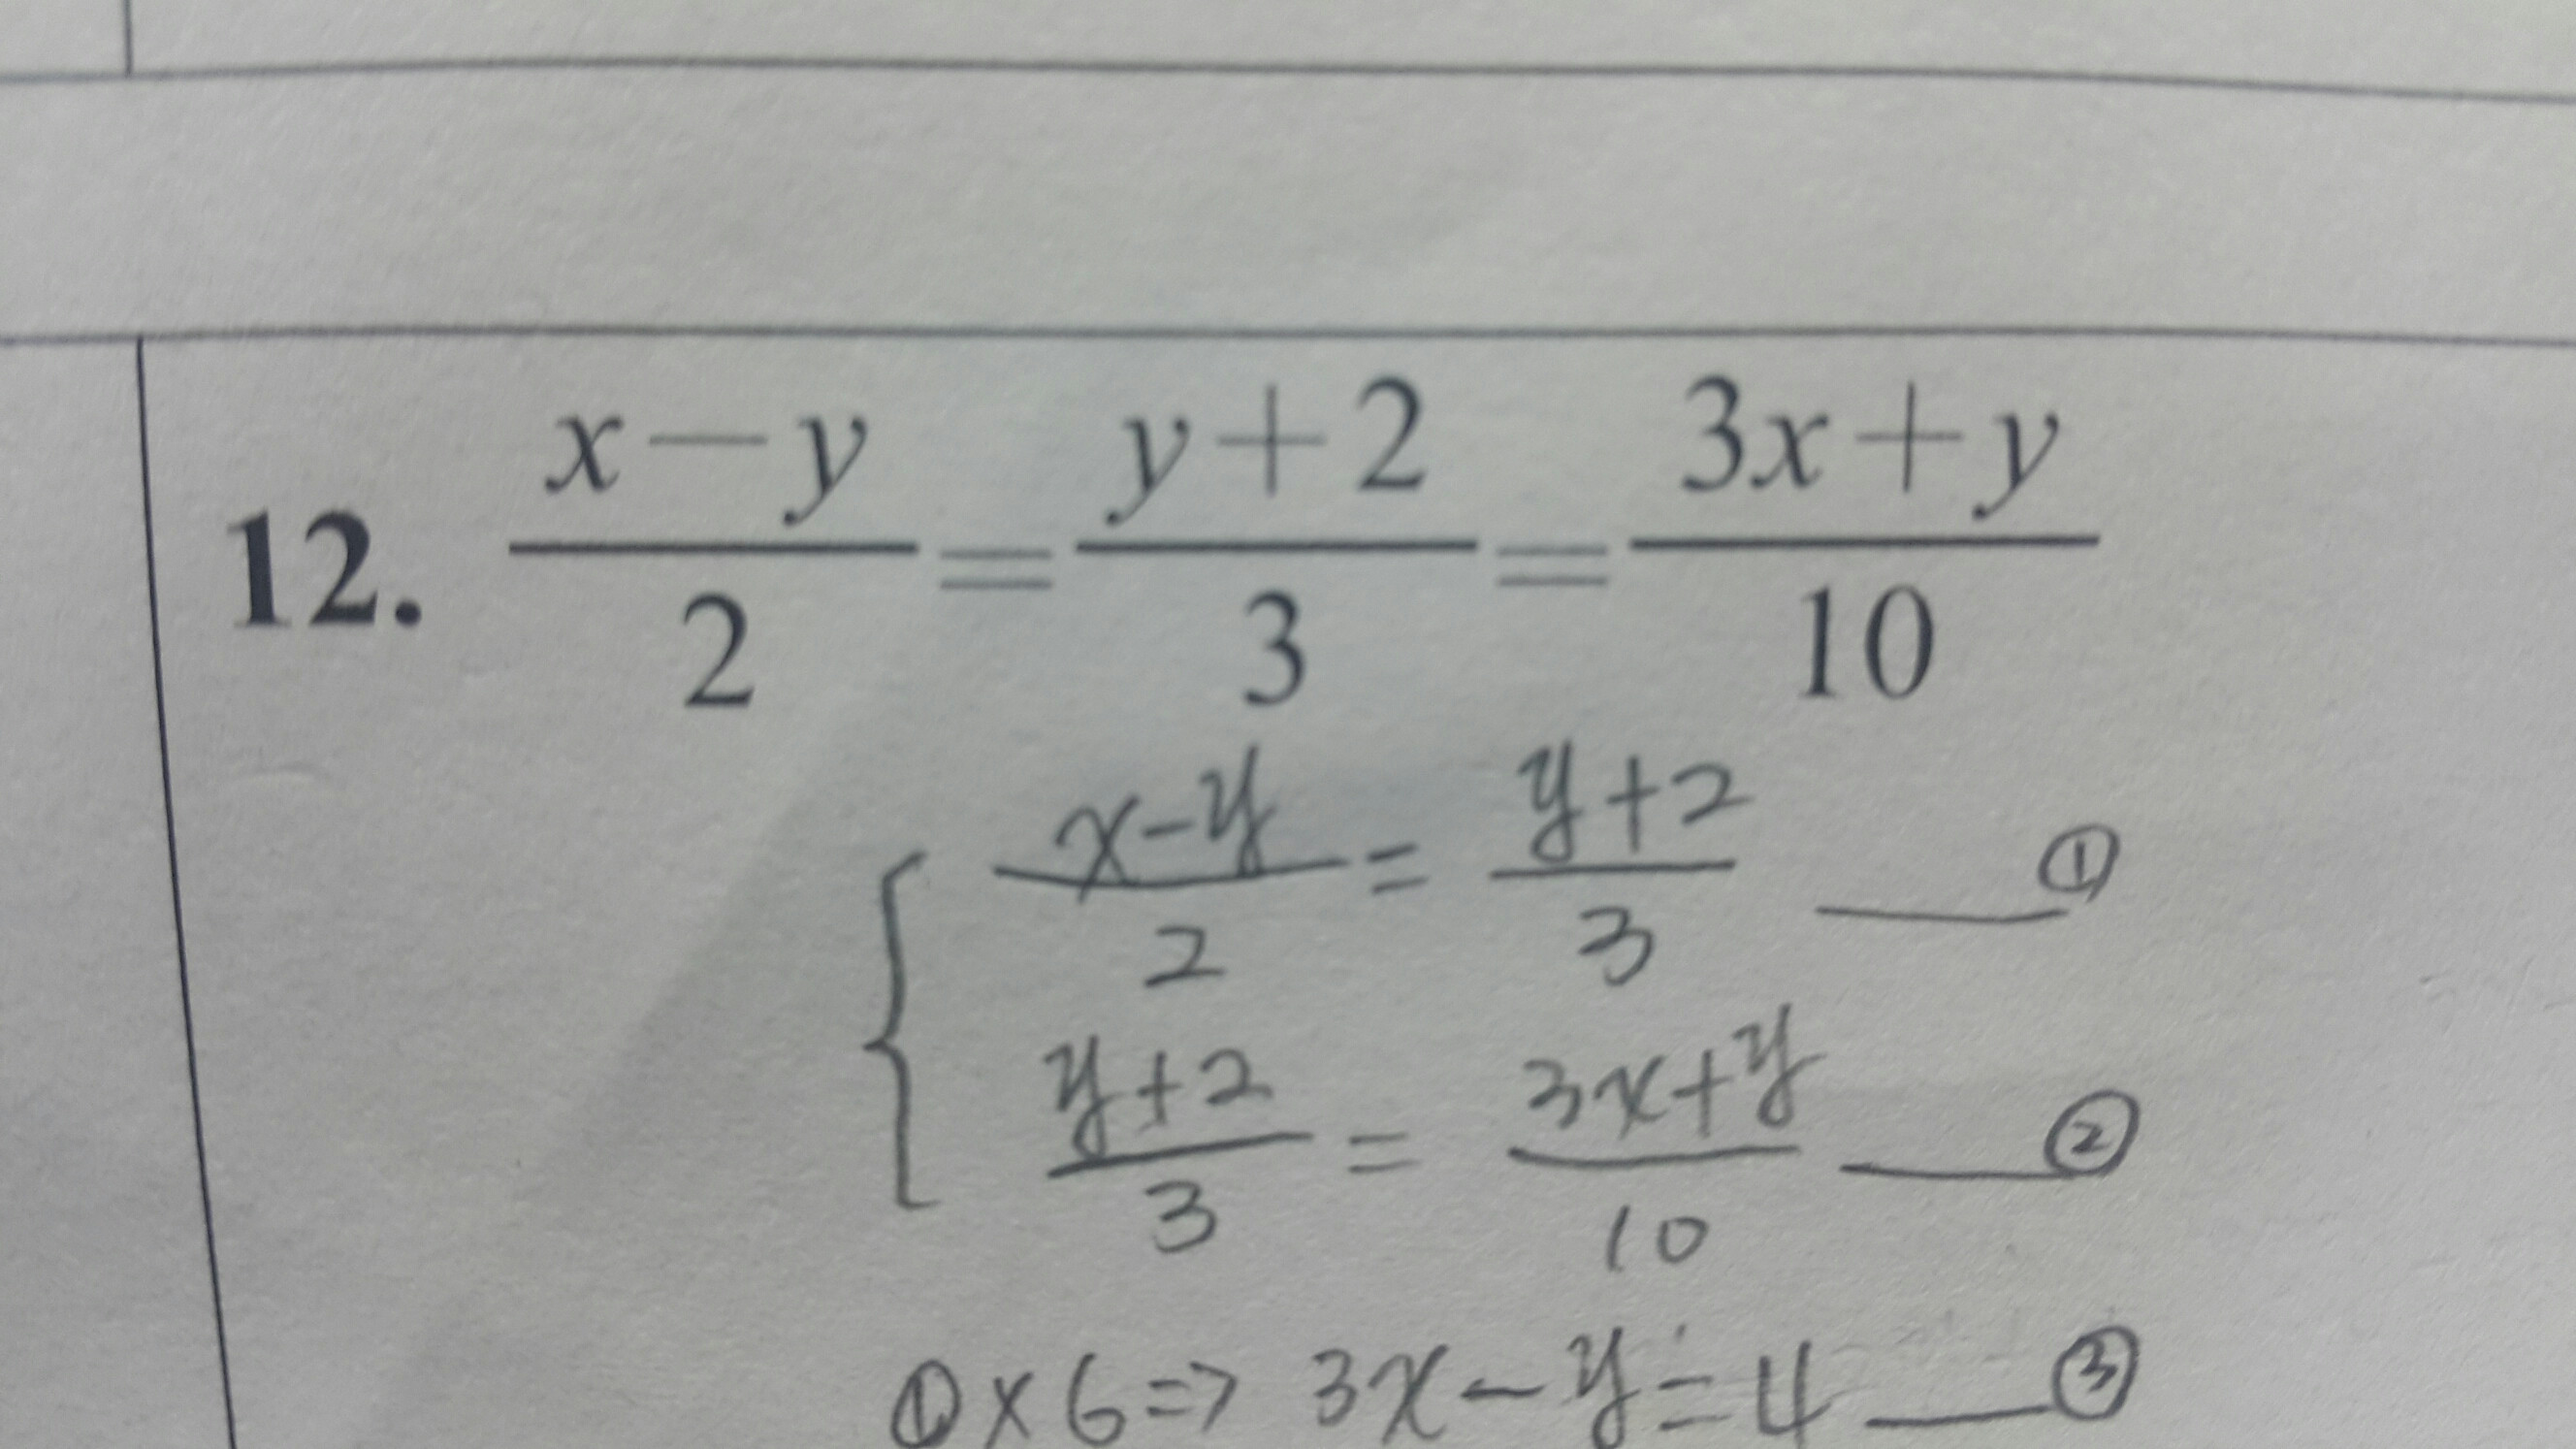 12. \frac{x-y}{2} = \frac{y+2}{3} = \frac{3x+y}{10}
\frac{x-y}{2} = \frac{y+2}{3} — ①
\frac{y+2}{3} = \frac{3x+y}{10} — ②
①×6⇒ 3x-y=4 — ③